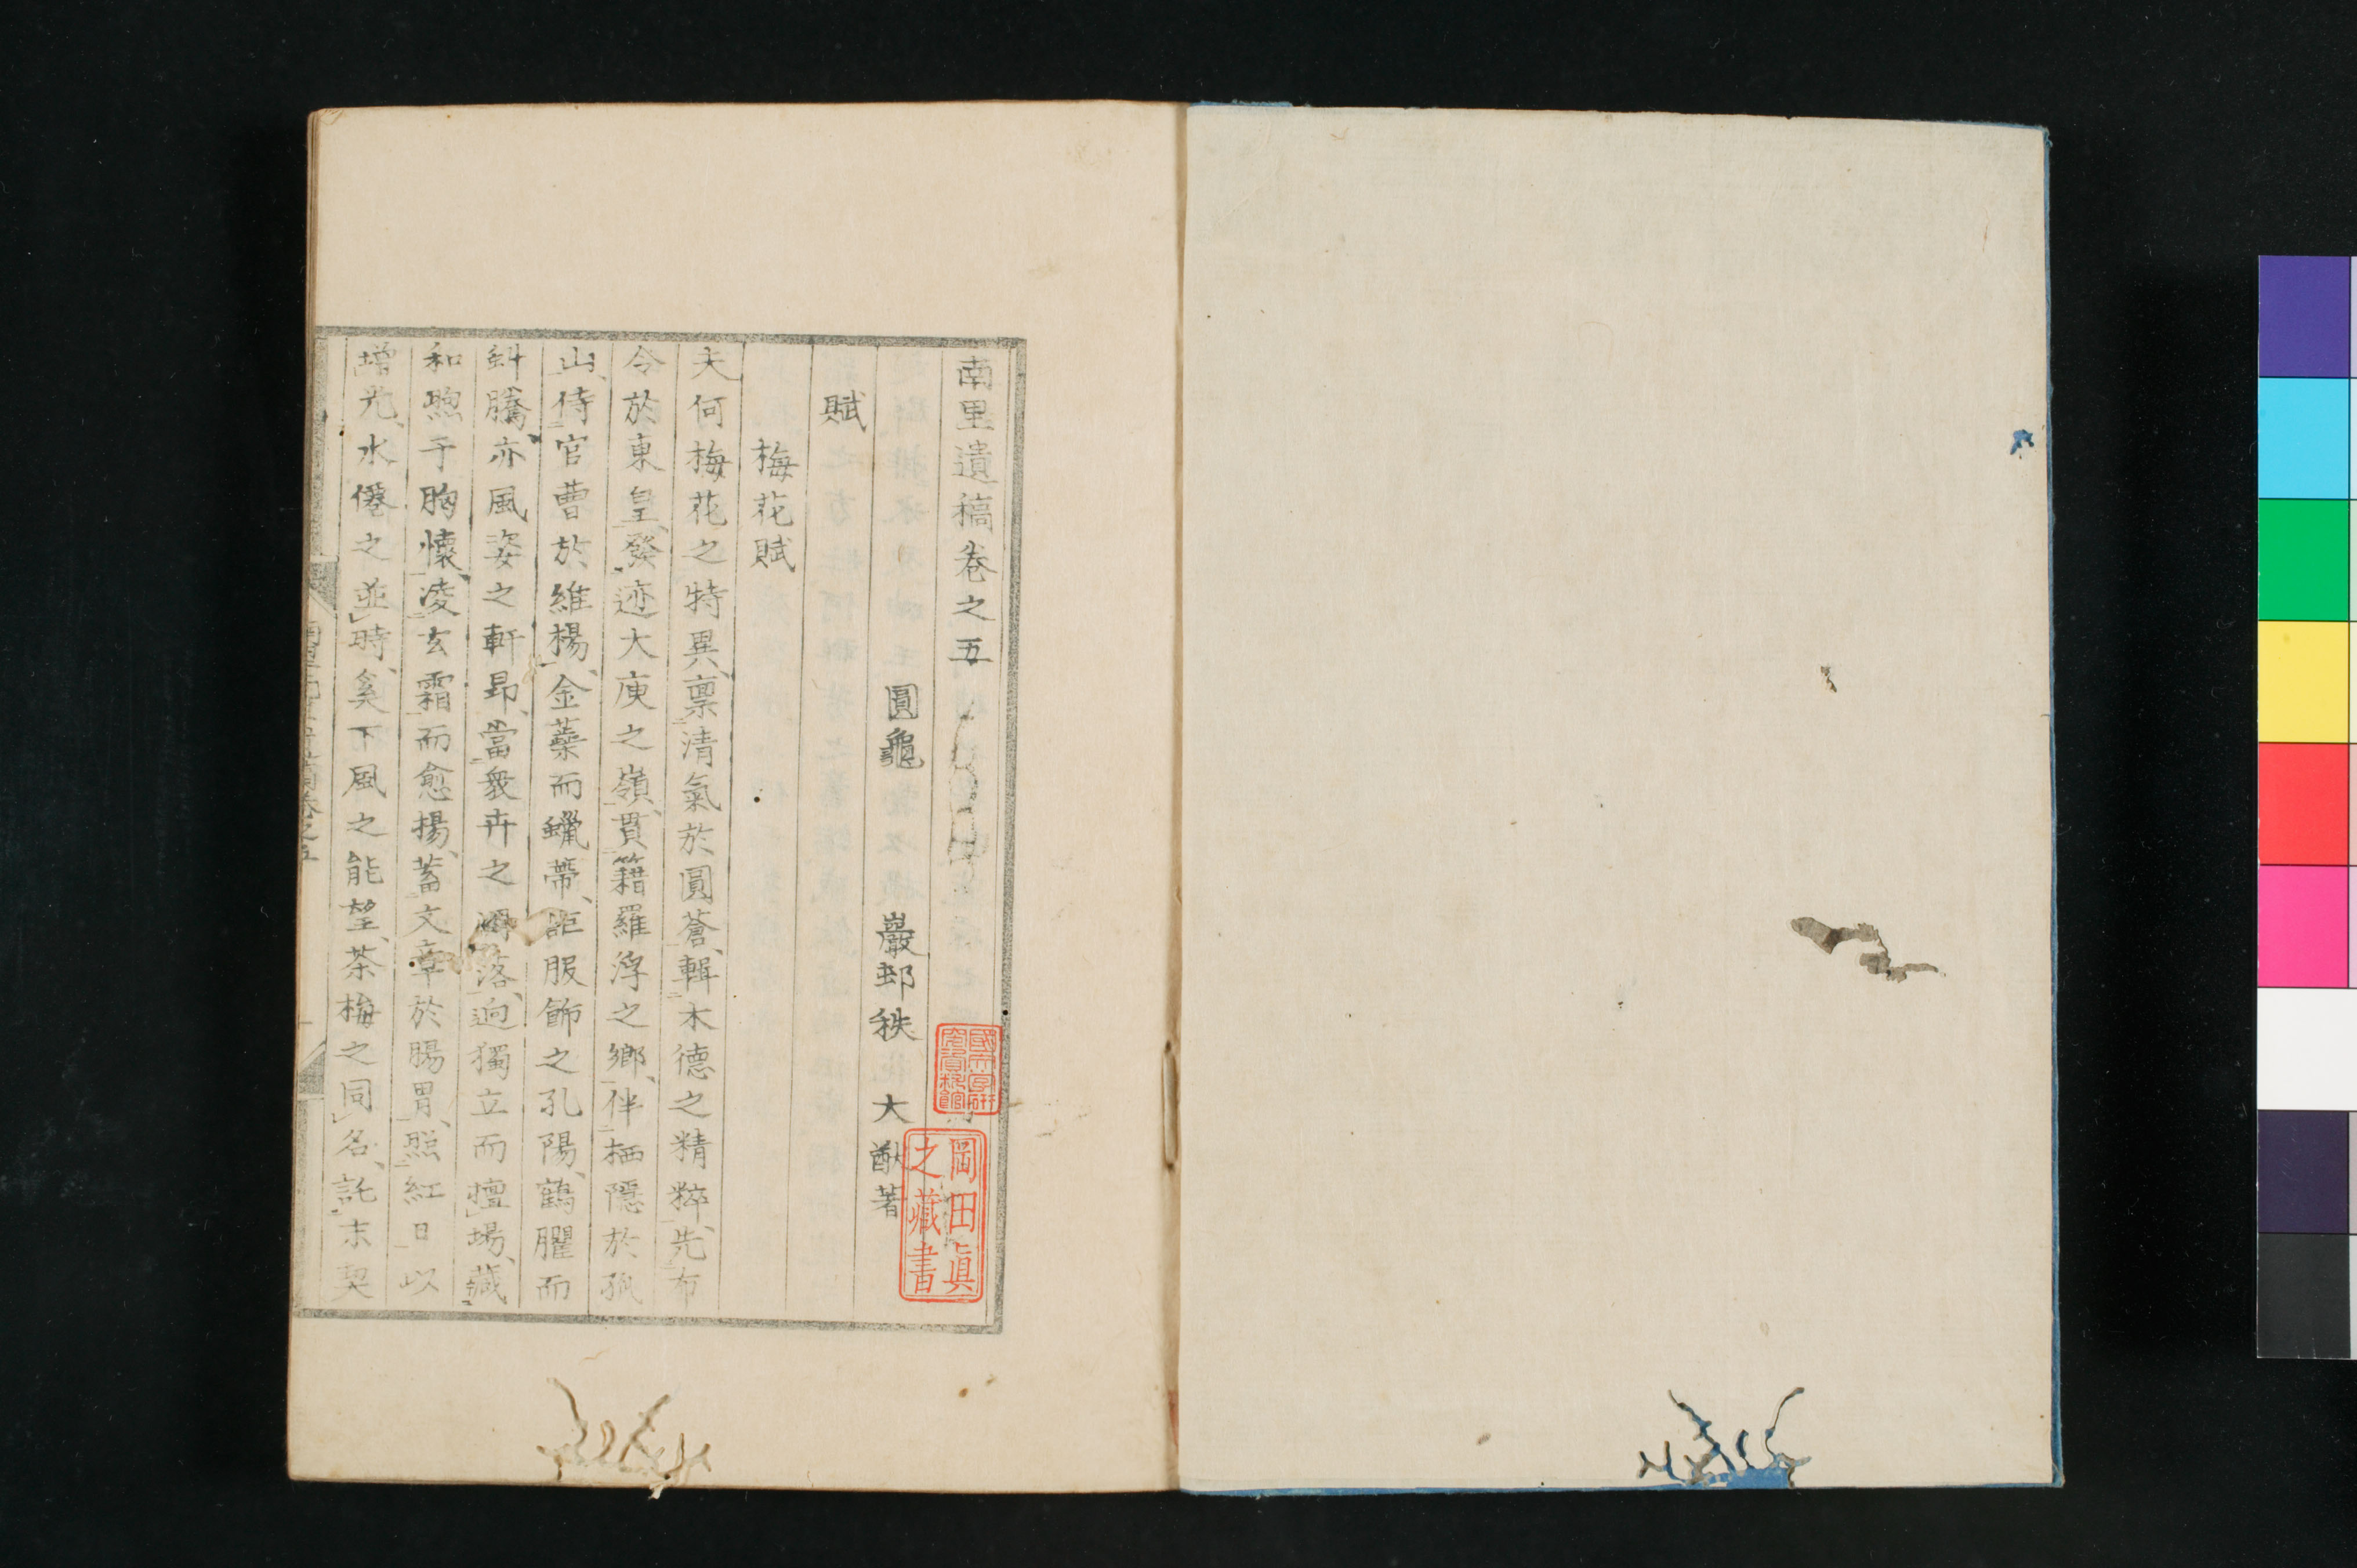 南里遺稿卷之五
圓龜　巖邨秩　大猷著
賦
梅花賦
夫何梅花之特異、稟清氣於圓蒼、輯木德之精粹、先布
令於東皇、發迹大庾之嶺、貫籍羅浮之鄉、伴栖隱於孤
山、侍官曹於維楊、金蘂而蠟蔕、詎服飾之孔陽、鶴臞而
虯騰、亦風姿之軒昂、當衆卉之落、迥獨立而擅場、藏
和煦于胸懷、凌玄霜而愈揚、蓄文章於腸胃、照紅日以
增光、水僊之並時、奚下風之能望、茶梅之同名、託末契
卷之五
國文學研究資料館
岡田眞之藏書